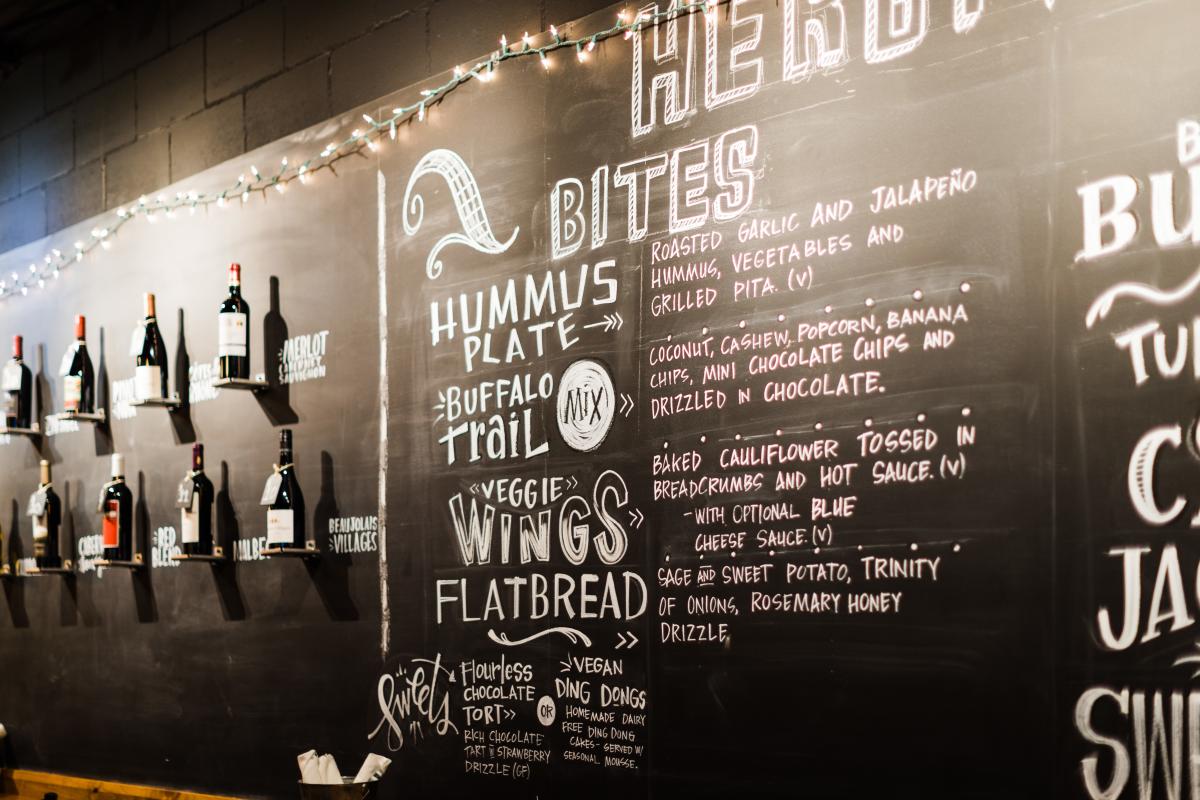 BITES
HUMMUS
PLATE
ROASTED GARLIC AND JALAPEÑO
HUMMUS, VEGETABLES AND
GRILLED PITA. (V)
BUFFALO
TRAIL
MIX
COCONUT, CASHEW, POPCORN, BANANA
CHIPS, MINI CHOCOLATE CHIPS AND
DRIZZLED IN CHOCOLATE.
«VEGGIE»
WINGS
BAKED CAULIFLOWER TOSSED IN
BREADCRUMBS AND HOT SAUCE. (V)
-WITH OPTIONAL BLUE
CHEESE SAUCE. (V)
FLATBREAD
SAGE AND SWEET POTATO, TRINITY
OF ONIONS, ROSEMARY HONEY
DRIZZLE
Sweets
Flourless
CHOCOLATE
TORT»
RICH CHOCOLATE
TART STRAWBERRY
DRIZZLE (GF)
OR
VEGAN
DING DONGS
HOMEMADE DAIRY
FREE DING DONG
CAKES - SERVED W/
SEASONAL MOUSSE.
MERLOT
SAUVIGNON
RED
BEAUJOLAIS
VILLAGES